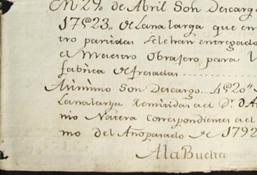 En 29 de Abril Son Descarg
17@23 de Lana larga que en
tro partidas se le han entregado
el Maestro Obrajero para l
fabrica de fresadas
Asimismo Son Descargo 4@20
Lana larga Remitidas a el Dn. A
nio Naxera Correspondiente a el
mo del Año pasado de 1792
A la Buelta